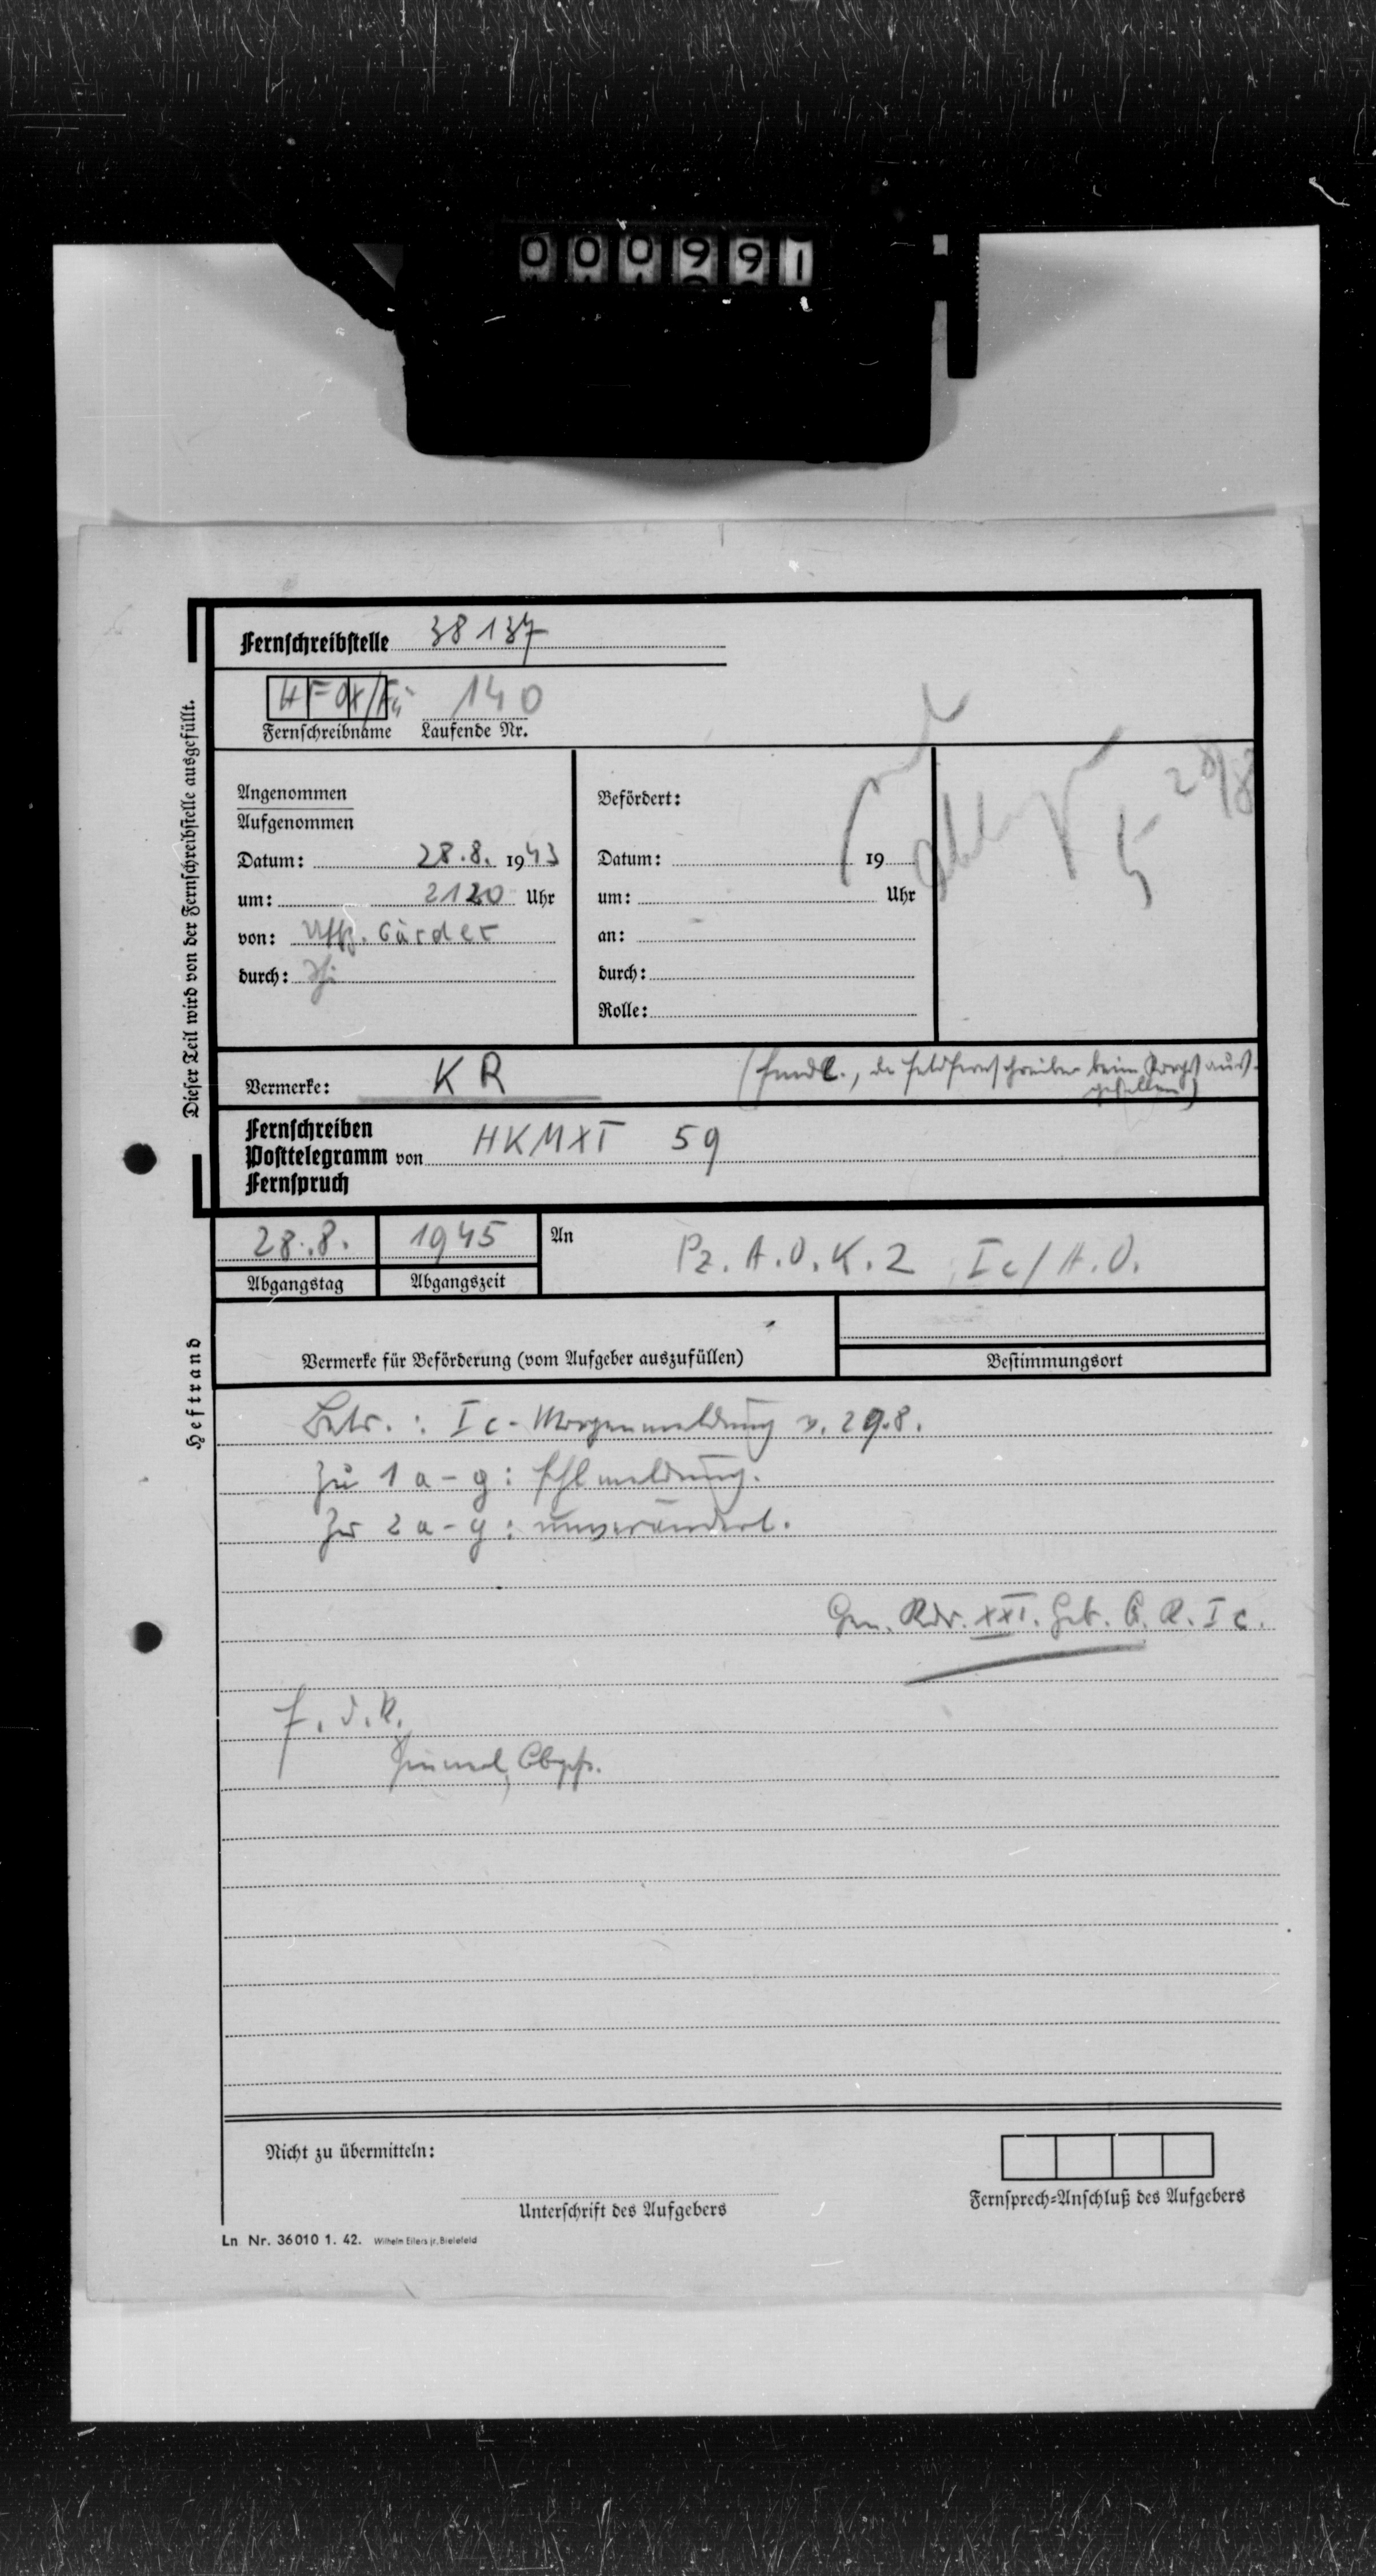 000991
Fernschreibstelle 38137
HFOX/Fü 140
Fernschreibname Laufende Nr.
Dieser Teil wird von der Fernschreibstelle ausgefüllt.
Angenommen
Aufgenommen
Datum: 28.8. 1943
um: 2120 Uhr
von: Uffz. Gärder
durch:
Befördert:
Datum: 19
um: Uhr
an:
durch:
Rolle:
28/8
Vermerke: KR (fmdl., da Feldfernschreiber beim Korps aus-
gefallen)
Fernschreiben
Posttelegramm von HKMXT 59
Fernspruch
28.8. 1945 An Pz. A.O.K. 2 Ic/A.O.
Abgangstag Abgangszeit
Vermerke für Beförderung (vom Aufgeber auszufüllen) Bestimmungsort
Heftrand
Betr.: Ic-Morgenmeldung v. 29.8.
Zu 1 a-g: Fehlmeldung.
Zu 2 a-g: unverändert.
Gen. Kdo. XXI. Geb. A. K. Ic.
F.d.R.
Obgefr.
Nicht zu übermitteln:
Unterschrift des Aufgebers
Fernsprech-Anschluß des Aufgebers
Ln Nr. 36010 1. 42. Wilhelm Eilers jr, Bielefeld